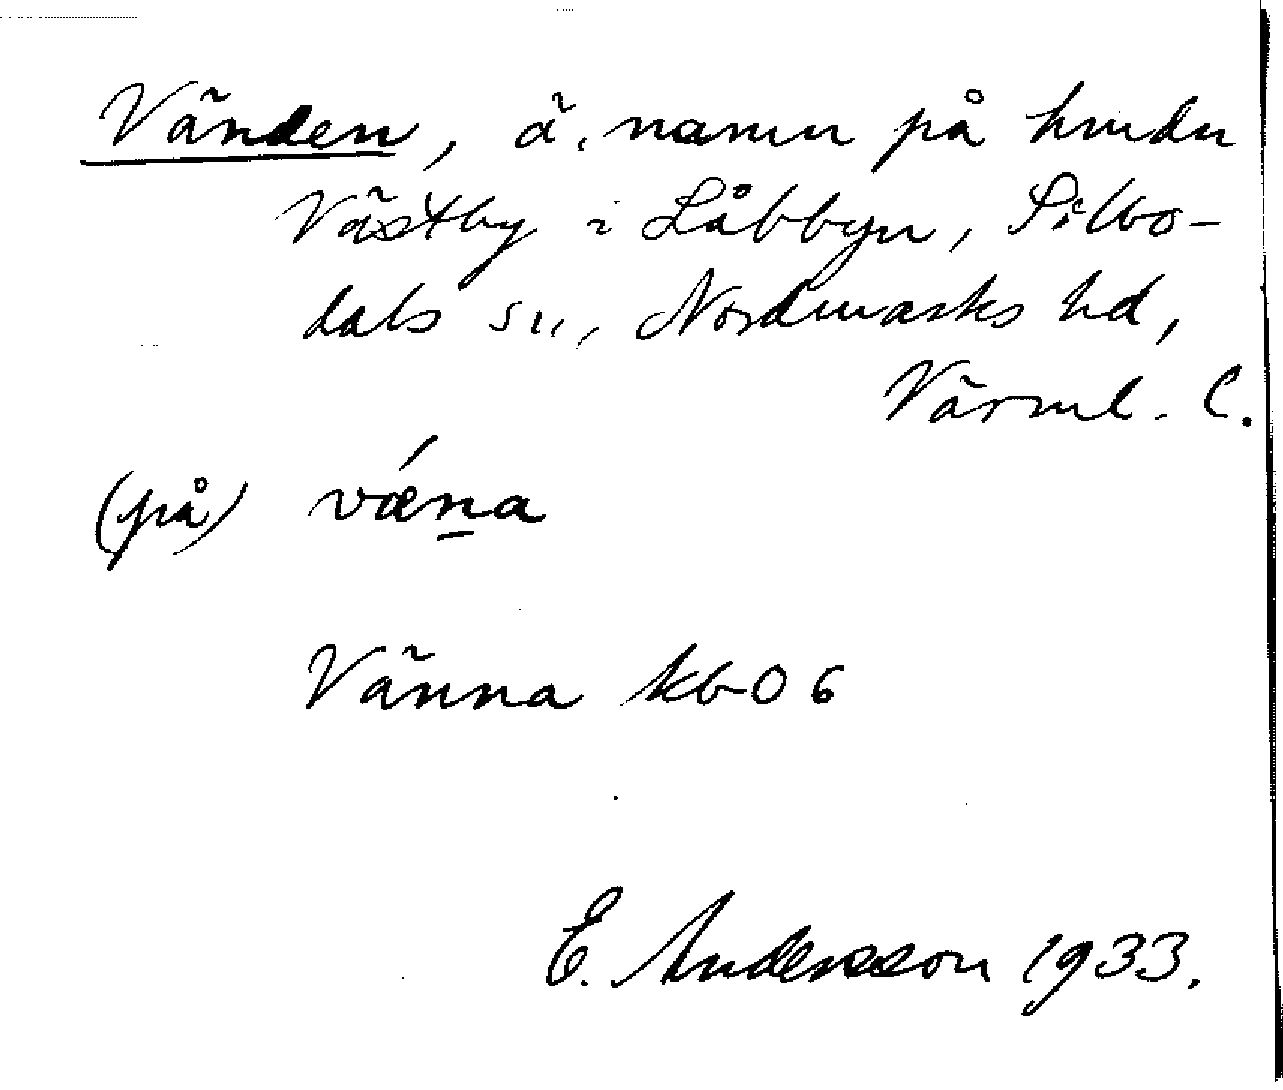 Vänden, ä. namn på hmdn
Västby i Låbbyn, Silbo-
dals sn, Nordmarks hd,
Värml. l.
(på) vǽn̲a
Vänna kb 06
E. Andersson 1933.